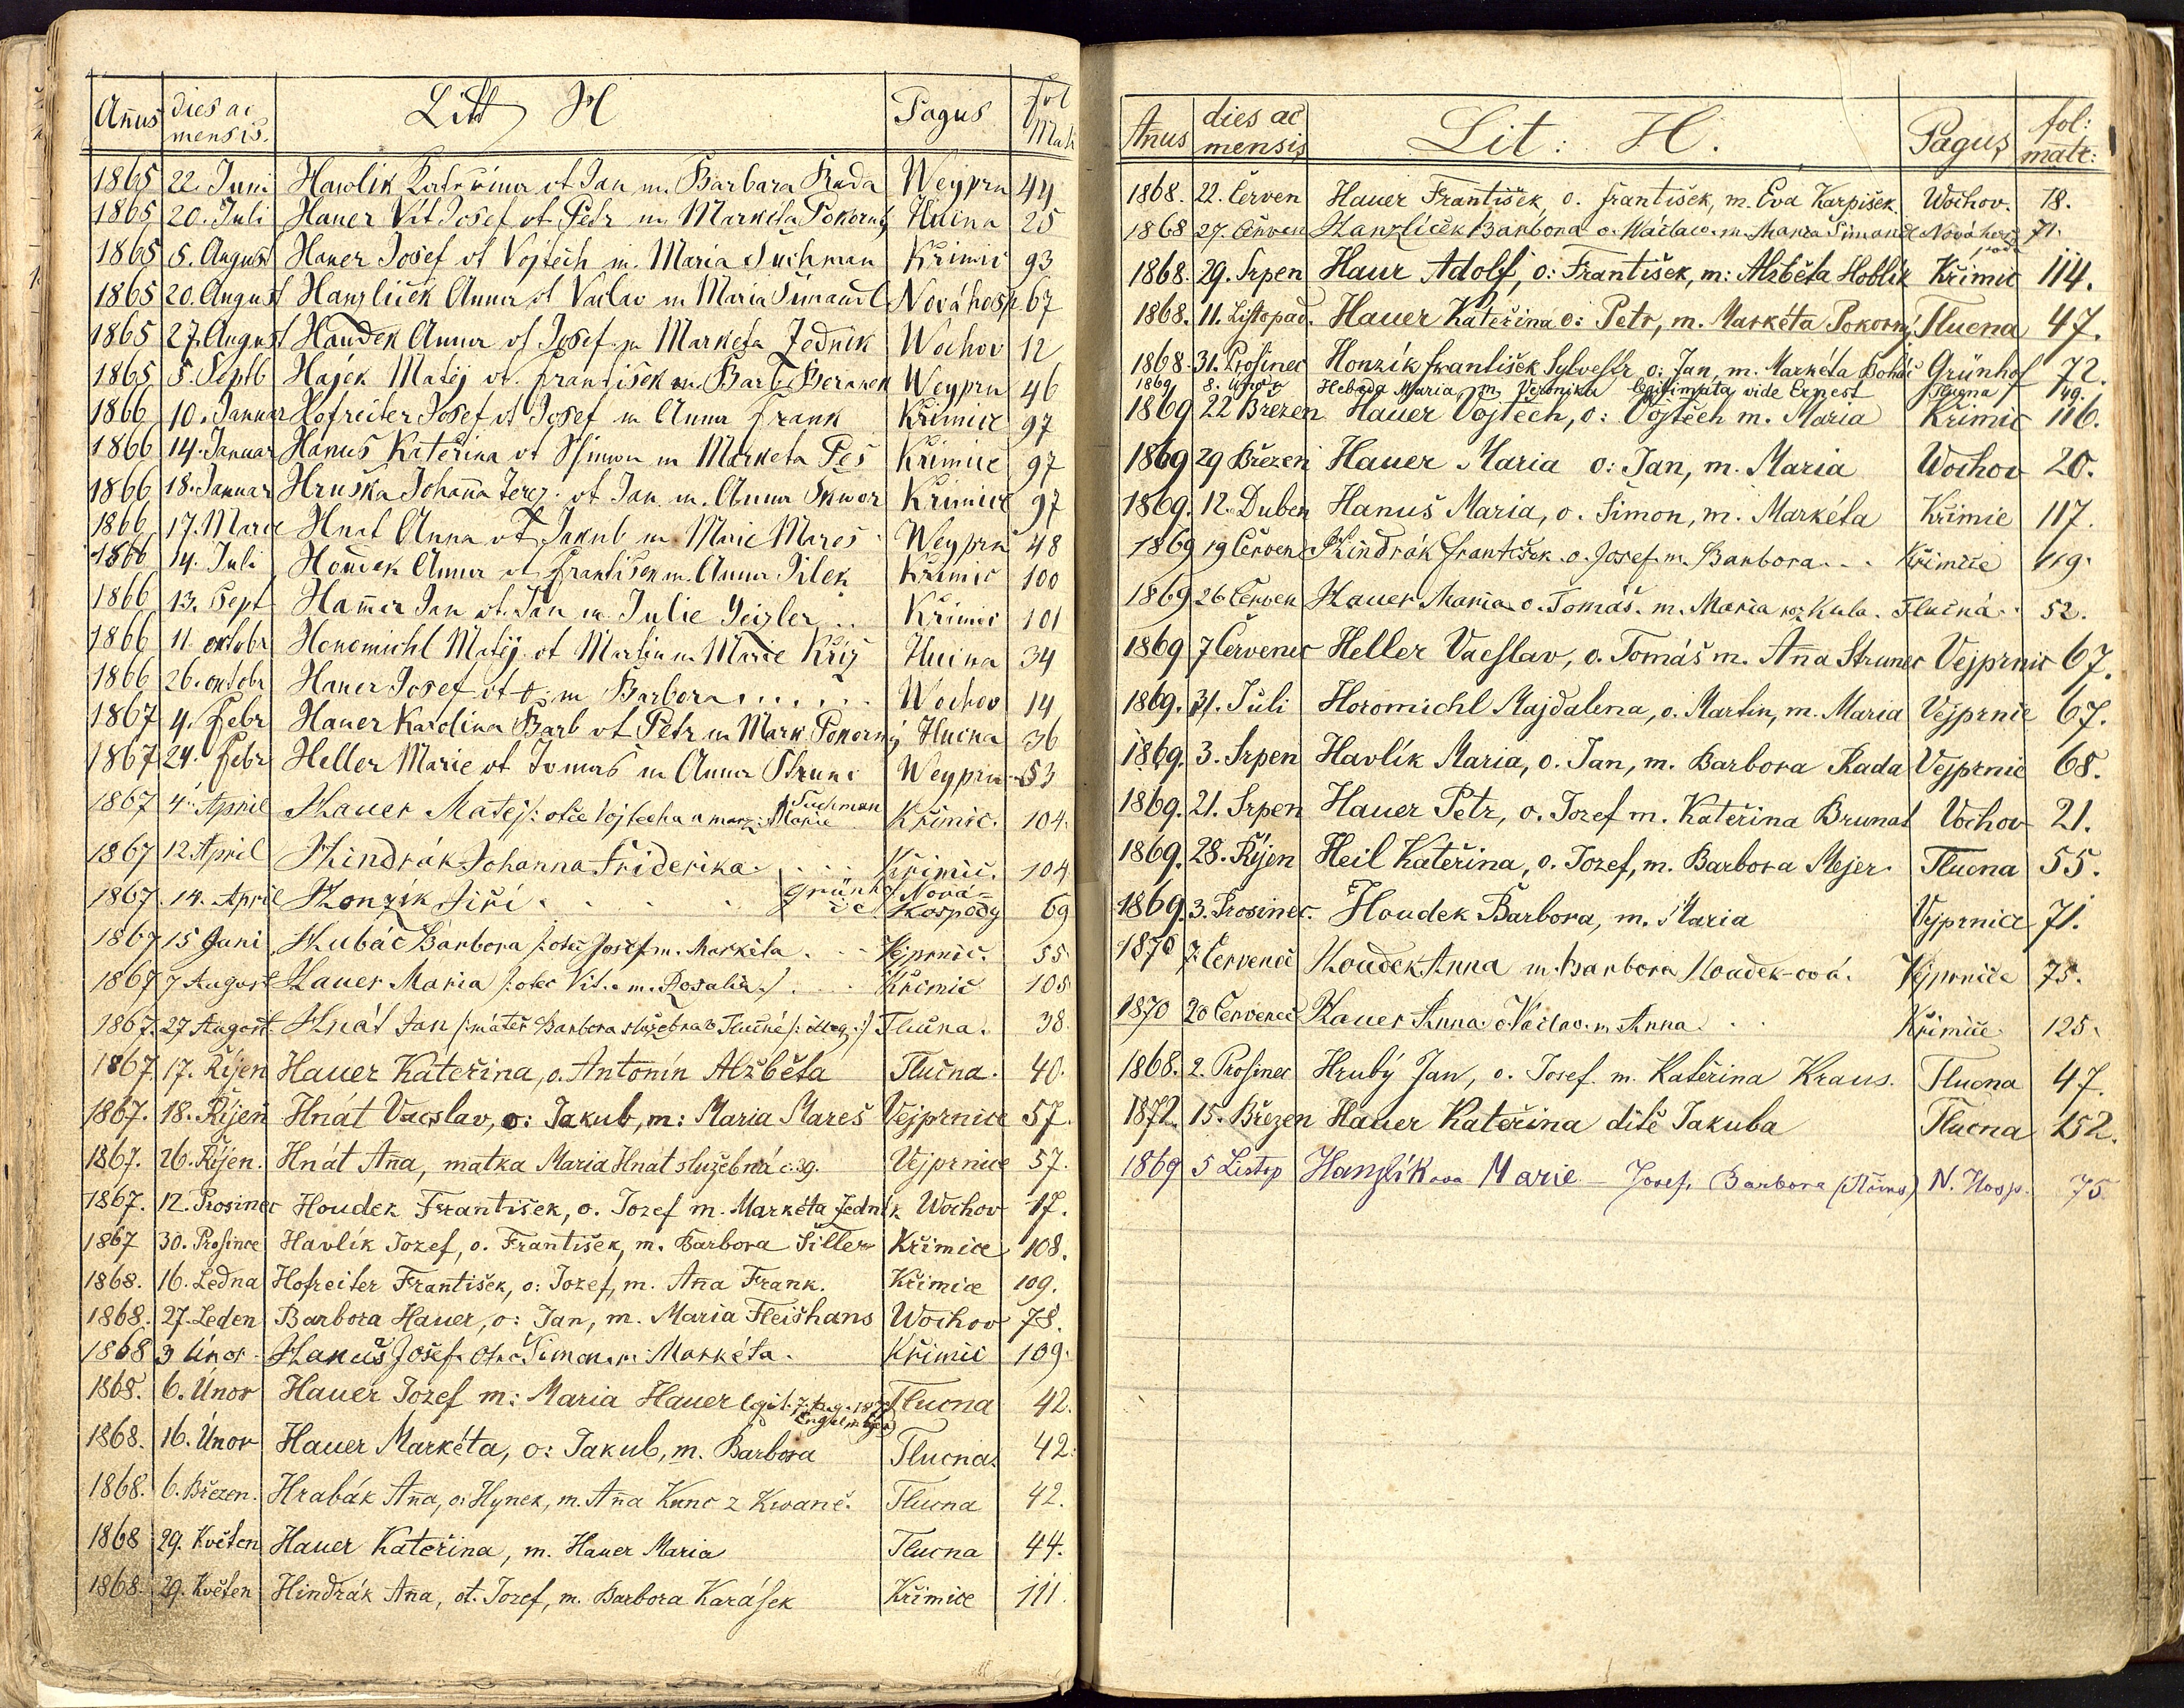 Añus dies ac mensis. Litt H Pagus fol Matr
1865 22. Juni Hawlik Kateřina ot Jan m. Barbara Rada Weyprn 44
1865 20. Juli Hauer Vít Josef ot Petr m Markéta Pokorný Tlucna 25
1865 5. August Hauer Josef ot Vojtěch m. Maria Suchman Křimic 93
1865 20. August Hanzliček Anna ot Vaclav m Maria Simandl Nováhosp 67
1865 27. August Haudek Anna ot Josef m Marketa Jednik Wochov 12
1865 5. Septb Hajek Matěj ot. František m Barb. Beranek Weyprn 46
1866 10. Januar Hofreiter Josef ot Josef m Anna Frank Křimice 97
1866 14. Januar Hanus Kateřina ot Šimon m Marketa Peš Křimice 97
1866 18. Januar Hruška Johaña Terez. ot Jan m. Anna Skwor Křimice 97
1866 17. Marce Hnat Anna ot Jakub m Marie Mareš Weyprn 48
1866 14. Juli Houdek Anna ot František m. Anna Pilek Křimic 100
1866 13. Sept Hamer Jan ot. Jan m Julie Geizler .. Křimic 101
1866 11. oktobr Honomichl Matěj ot Martin m Marie Kříž Tlucna 34
1866 26. oktobr Hauer Josef ot o. m Barbora . . . . . . Wochov 14
1867 4. Febr Hauer Karolina Barb ot Petr m Mark Pokorný Tlucna 36
1867 24. Febr Heller Marie ot Tomas m Anna Strunc Weyprn 53
1867 4. April Hauer Matěj /: otče Vojtecha a Marie Suchman Křimic. 104.
1867 12 April Hindrák Johanna Friderika . . . Křimic. 104
1867. 14. April Honzík Jiří . . . . Grünhof Nová=Hospody 69
1867. 15 Juni Hubáč Barbora /: otec Josef m. Markéta . . Vejprnic. 55
1867 7 August Hauer Maria /: otec Vit. m. Rosalia :/ . . . Křimic 105
1867. 27 August Hnát Jan /: máteř Barbora služebná v Tlučné /: illeg. :/ Tlučna. 38.
1867. 17. Říjen Hauer Kateřina, o. Antonín Alžběta Tlučna. 40.
1867. 18. Říjen Hnát Vacslav, o: Jakub, m: Maria Mareš Vejprnice 57.
1867. 26. Říjen. Hnát Aña, matka Maria Hnát služebná č. 39. Vejprnice 57.
1867. 12. Prosinec Houdek František, o. Jozef m. Markéta Jedník Wochov 17.
1867 30. Prosince Havlík Jozef, o. František, m. Barbora Šiller Křimice 108.
1868. 16. Ledna Hofreiter František, o: Jozef, m. Aña Frank. Křimice 109.
1868. 27. Leden Barbora Hauer, o: Jan, m. Maria Fleišhans Wochov 78.
1868 3 Únor Hanuš Josef. Otec Šimon. m: Markéta. Křimic 109.
1868. 6. Únor Hauer Jozef m: Maria Hauer Tlucna 42.
1868. 16. Únor Hauer Markéta, o: Jakub, m. Barbora Tlucna. 42.
1868. 6. Březen. Hrabák Aña, o: Hynek, m. Aña Kunc z Kwaně. Tlucna 42.
1868 29. Květen Hauer Kateřina, m. Hauer Maria Tlucna 44.
1868. 29. Květen Hindrák Aña, ot. Jozef, m. Barbora Karásek Křimice 111.
Añus dies ac mensis Lit: H. Pagus fol: matr:
1868. 22. Červen Hauer František, o. František, m. Eva Karpišek. Wochov. 18.
1868 27. Červen Hanzlíček Barbora o. Václav. m. Maria Šimandl Nová hos 71.
1868. 29. Srpen Haur Adolf, o: František, m: Alzběta Hoblík Křimic 114.
1868. 11. Listopad. Hauer Kateřina o: Petr, m. Markéta Pokorný Tlucna 47.
1868. 31. Prosinec Honzík František Sylvestr o: Jan, m. Markéta Boháč Grünhof 72.
1869 8. Únor Hebeda Maria m Veronika legitimata vide Ernest Tlucna 49.
1869 22 Březen Hauer Vojtěch, o: Vojtěch m. Maria Křimic 116.
1869 29 Březen Hauer Maria o: Jan, m. Maria Wochov 20.
1869. 12. Duben Hanuš Maria, o. Šimon, m. Markéta Křimic 117.
1869 19 Červen Hindrák František. o. Josef. m. Barbora . . . Křimice 119.
1869 26 Červen Hauer Maria. o. Tomáš. m. Maria roz Kula. Tlučná . . 52.
1869 7 Červenec Heller Vacslav, o. Tomáš m. Aña Strunec Vejprnic 67.
1869. 31. Juli Horomichl Majdalena, o. Martin, m. Maria Vejprnic 67.
1869. 3. Srpen Havlík Maria, o. Jan, m. Barbora Rada Vejprnic 68.
1869. 21. Srpen Hauer Petr, o. Jozef m. Kateřina Brunat Vochov 21.
1869. 28. Říjen Heil Kateřina, o. Jozef, m. Barbora Mejer. Tlucna 55.
1869. 3. Prosinec. Houdek Barbora, m. Maria Vejprnice 71.
1870 7. Červenec Houdek Anna m. Barbora Houdek-ová. Vejprnice 75.
1870 20 Červenec Hauer Anna o Václav. m. Anna . . Křimice 125.
1868. 2. Prosinec Hrubý Jan, o. Josef. m. Kateřina Kraus. Tlucna 47.
1872. 15. Březen Hauer Kateřina dítě Jakuba Tlucna 152.
1869 5 Listop Hanzlíkova Marie – Josef, Barbora N. Hosp. 75